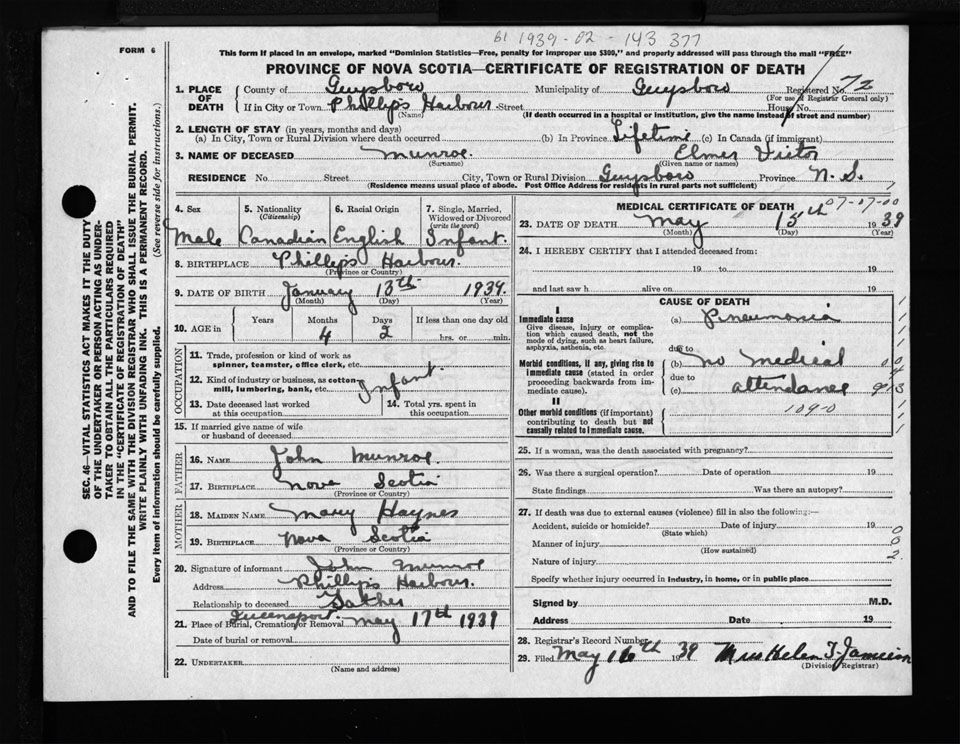 61 1939-02-143 377
FORM 6
This form if placed in an envelope, marked "Dominion Statistics—Free, penalty for improper use $300," and properly addressed will pass through the mail "FREE"
PROVINCE OF NOVA SCOTIA—CERTIFICATE OF REGISTRATION OF DEATH
1. PLACE OF DEATH County of Guysboro Municipality of Guysboro Registered No. 72
(For use of Registrar General only)
If in City or Town Phillips Harbour Street House No.
(Name) (If death occurred in a hospital or institution, give the name instead of street and number)
2. LENGTH OF STAY (in years, months and days)
(a) In City, Town or Rural Division where death occurred (b) In Province Lifetime (c) In Canada (if immigrant)
3. NAME OF DECEASED Munroe. Elmer Victor
(Surname) (Given name or names)
RESIDENCE No. Street City, Town or Rural Division Guysboro Province N. S.
(Residence means usual place of abode. Post Office Address for residents in rural parts not sufficient)
4. Sex 5. Nationality 6. Racial Origin 7. Single, Married, Widowed or Divorced
(Citizenship) (write the word)
Male Canadian English Infant.
8. BIRTHPLACE Phillips Harbour.
(Province or Country)
9. DATE OF BIRTH January 13th 1939.
(Month) (Day) (Year)
10. AGE in Years Months Days If less than one day old
4 2 hrs. or min.
OCCUPATION
11. Trade, profession or kind of work as
spinner, teamster, office clerk, etc.
12. Kind of industry or business, as cotton
mill, lumbering, bank, etc. Infant.
13. Date deceased last worked at this occupation 14. Total yrs. spent in this occupation
15. If married give name of wife
or husband of deceased
FATHER
16. NAME John Munroe.
17. BIRTHPLACE Nova Scotia
(Province or Country)
MOTHER
18. MAIDEN NAME Mary Haynes
19. BIRTHPLACE Nova Scotia
(Province or Country)
20. Signature of informant John Munroe
Address Phillips Harbour.
Relationship to deceased Father
21. Place of Burial, Cremation or Removal Queensport. May 17th 1939
Date of burial or removal
22. UNDERTAKER
(Name and address)
MEDICAL CERTIFICATE OF DEATH
07-07-00
23. DATE OF DEATH May 15th 1939
(Month) (Day) (Year)
24. I HEREBY CERTIFY that I attended deceased from:
19 to 19
and last saw h alive on 19
CAUSE OF DEATH
I
Immediate cause (a) Pneumonia
Give disease, injury or complication which caused death, not the mode of dying, such as heart failure, asphyxia, asthenia, etc.
due to
Morbid conditions, if any, giving rise to immediate cause (stated in order proceeding backwards from immediate cause). (b) No medical
due to
(c) attendance
II
Other morbid conditions (if important) contributing to death but not causally related to immediate cause.
109-0
25. If a woman, was the death associated with pregnancy?
26. Was there a surgical operation? Date of operation 19
State findings Was there an autopsy?
27. If death was due to external causes (violence) fill in also the following:—
Accident, suicide or homicide? Date of injury 19
(State which)
Manner of injury
(How sustained)
Nature of injury
Specify whether injury occurred in industry, in home, or in public place
Signed by M.D.
Address Date 19
28. Registrar's Record Number
29. Filed May 16th 1939 Mrs Helen T. Jamieson
(Division Registrar)
SEC. 46—VITAL STATISTICS ACT MAKES IT THE DUTY
OF THE UNDERTAKER OR PERSON ACTING AS UNDER-
TAKER TO OBTAIN ALL THE PARTICULARS REQUIRED
IN THE "CERTIFICATE OF REGISTRATION OF DEATH"
AND TO FILE THE SAME WITH THE DIVISION REGISTRAR WHO SHALL ISSUE THE BURIAL PERMIT.
WRITE PLAINLY WITH UNFADING INK. THIS IS A PERMANENT RECORD.
Every item of information should be carefully supplied. (See reverse side for instructions.)